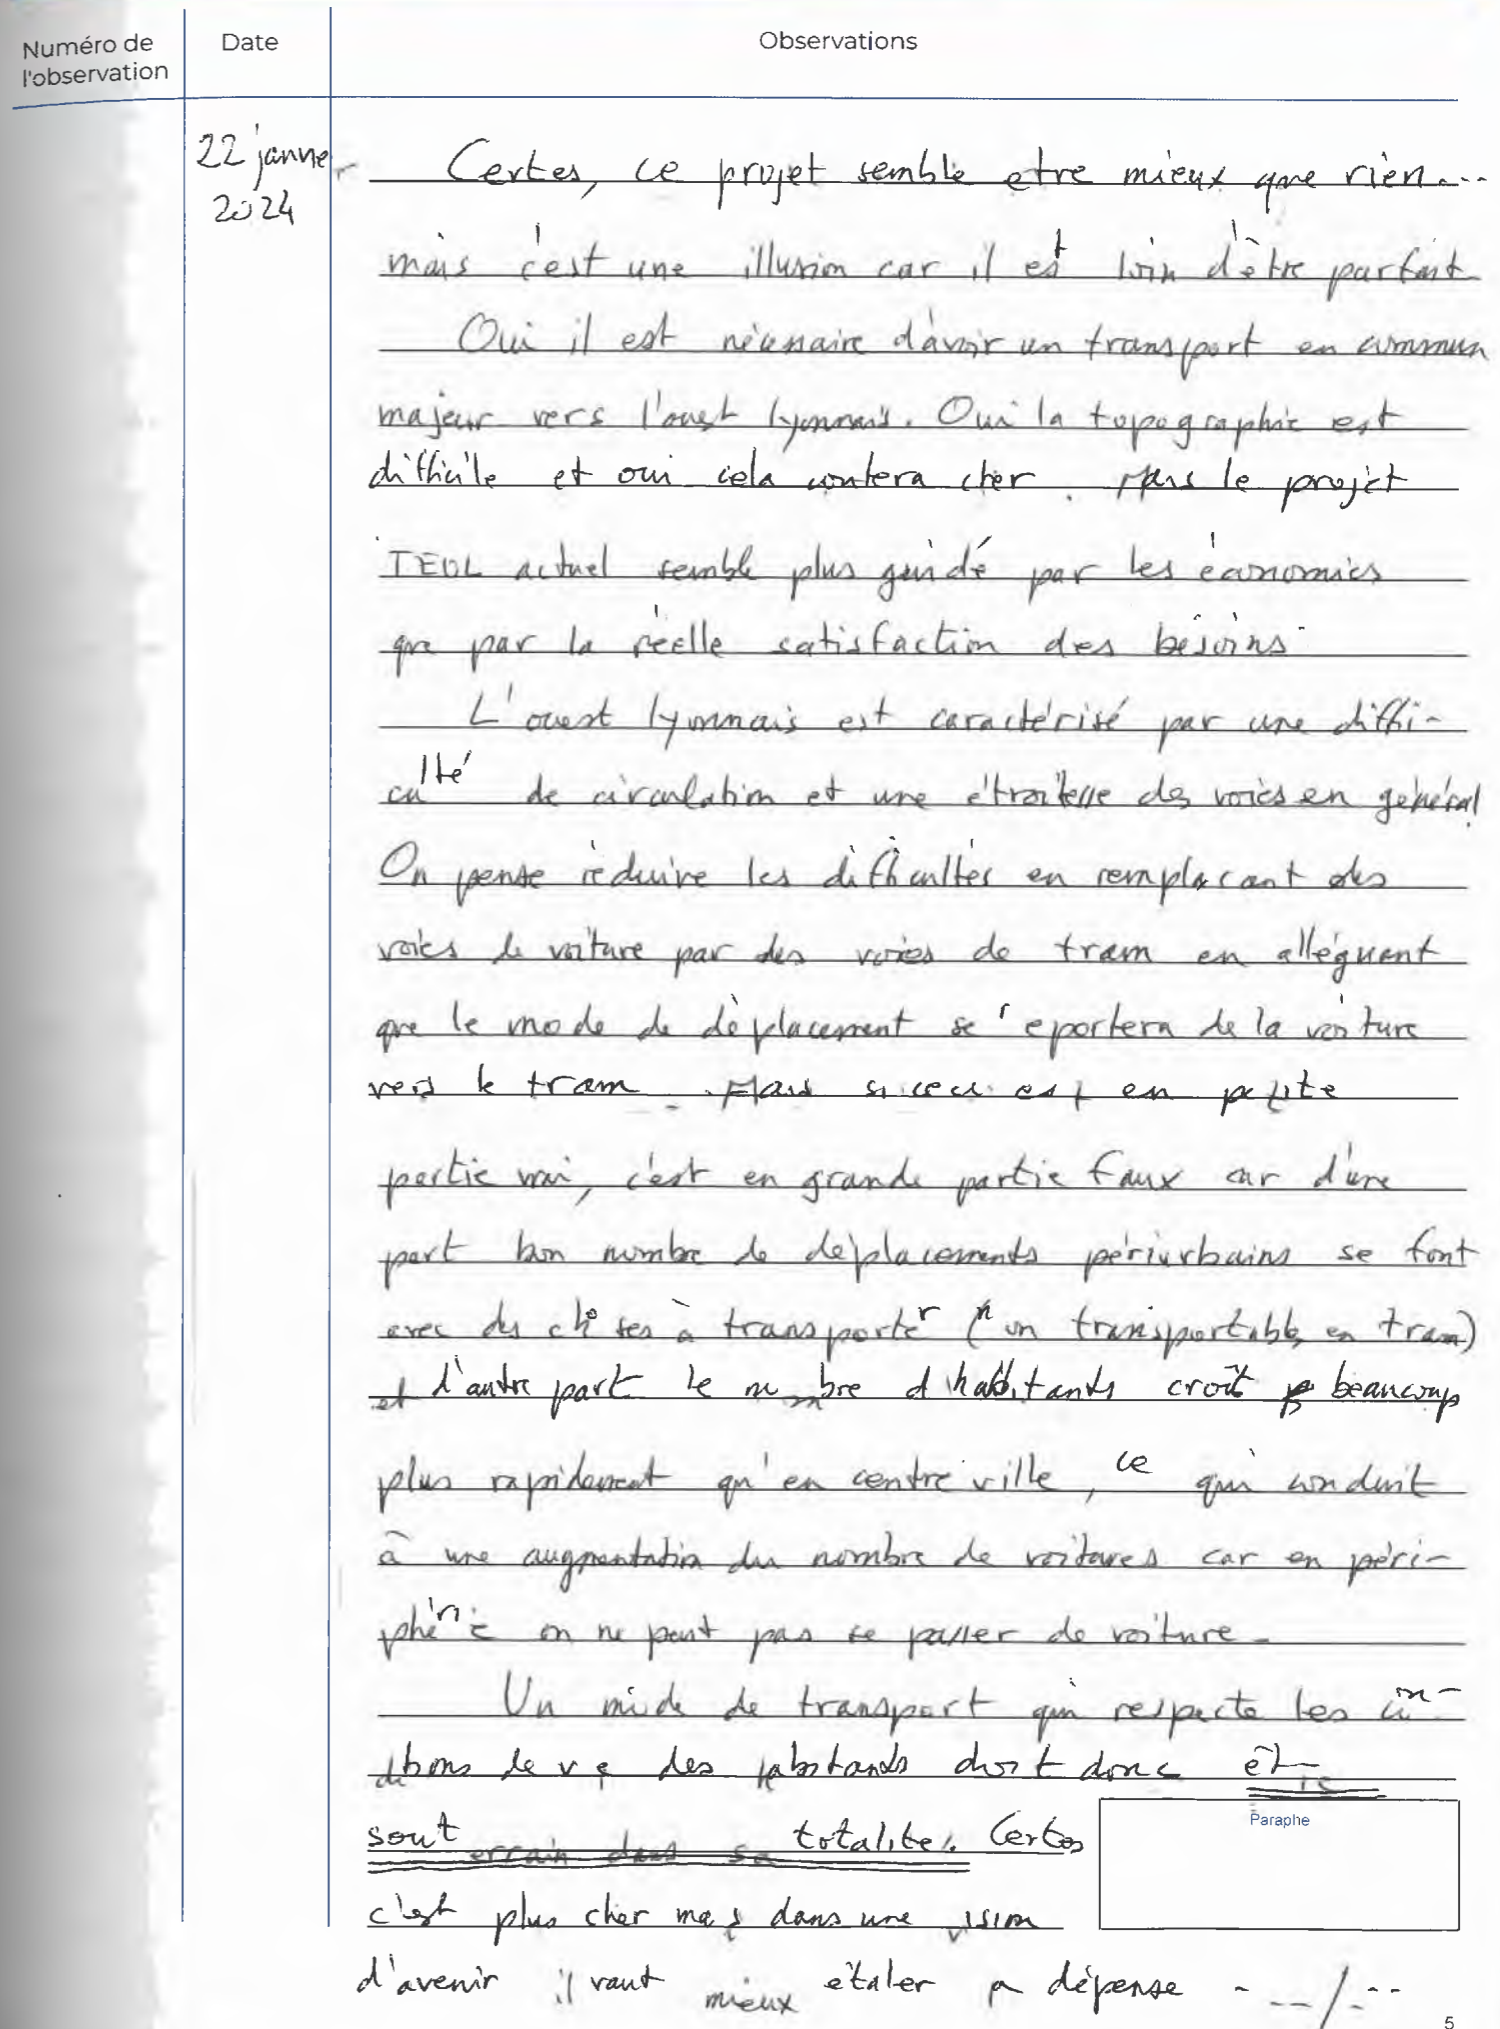 Numéro de
l'observation
Date
Observations
22 janvier
2024
Certes, ce projet semble etre mieux que rien...
mais c'est une illusion car il est loin d'être parfait
Oui il est nécessaire d'avoir un transport en commun
majeur vers l'ouest lyonnais. Oui la topographie est
difficile et oui cela coutera cher. Mais le projet
TEOL actuel semble plus guidé par les économies
que par la réelle satisfaction des besoins.
L'ouest lyonnais est caractérisé par une diffi-
culté de circulation et une étroitesse des voies en général.
On pense réduire les difficultés en remplacant des
voies de voiture par des voies de tram en alléguant
que le mode de déplacement se reportera de la voiture
vers le tram. Mais si ceci est en petite
partie vrai, c'est en grande partie faux car d'une
part bon nombre de déplacements périurbains se font
avec des choses à transporter (non transportables en tram)
et d'autre part le nombre d'habitants croît beaucoup
plus rapidement qu'en centre ville, ce qui conduit
à une augmentation du nombre de voitures car en péri-
phérie on ne peut pas se passer de voiture.
Un mode de transport qui respecte les con-
ditions de vie des habitants doit donc être
souterrain dans sa totalité. Certes
c'est plus cher mais dans une vision
d'avenir il vaut mieux étaler la dépense - --/---
Paraphe
5